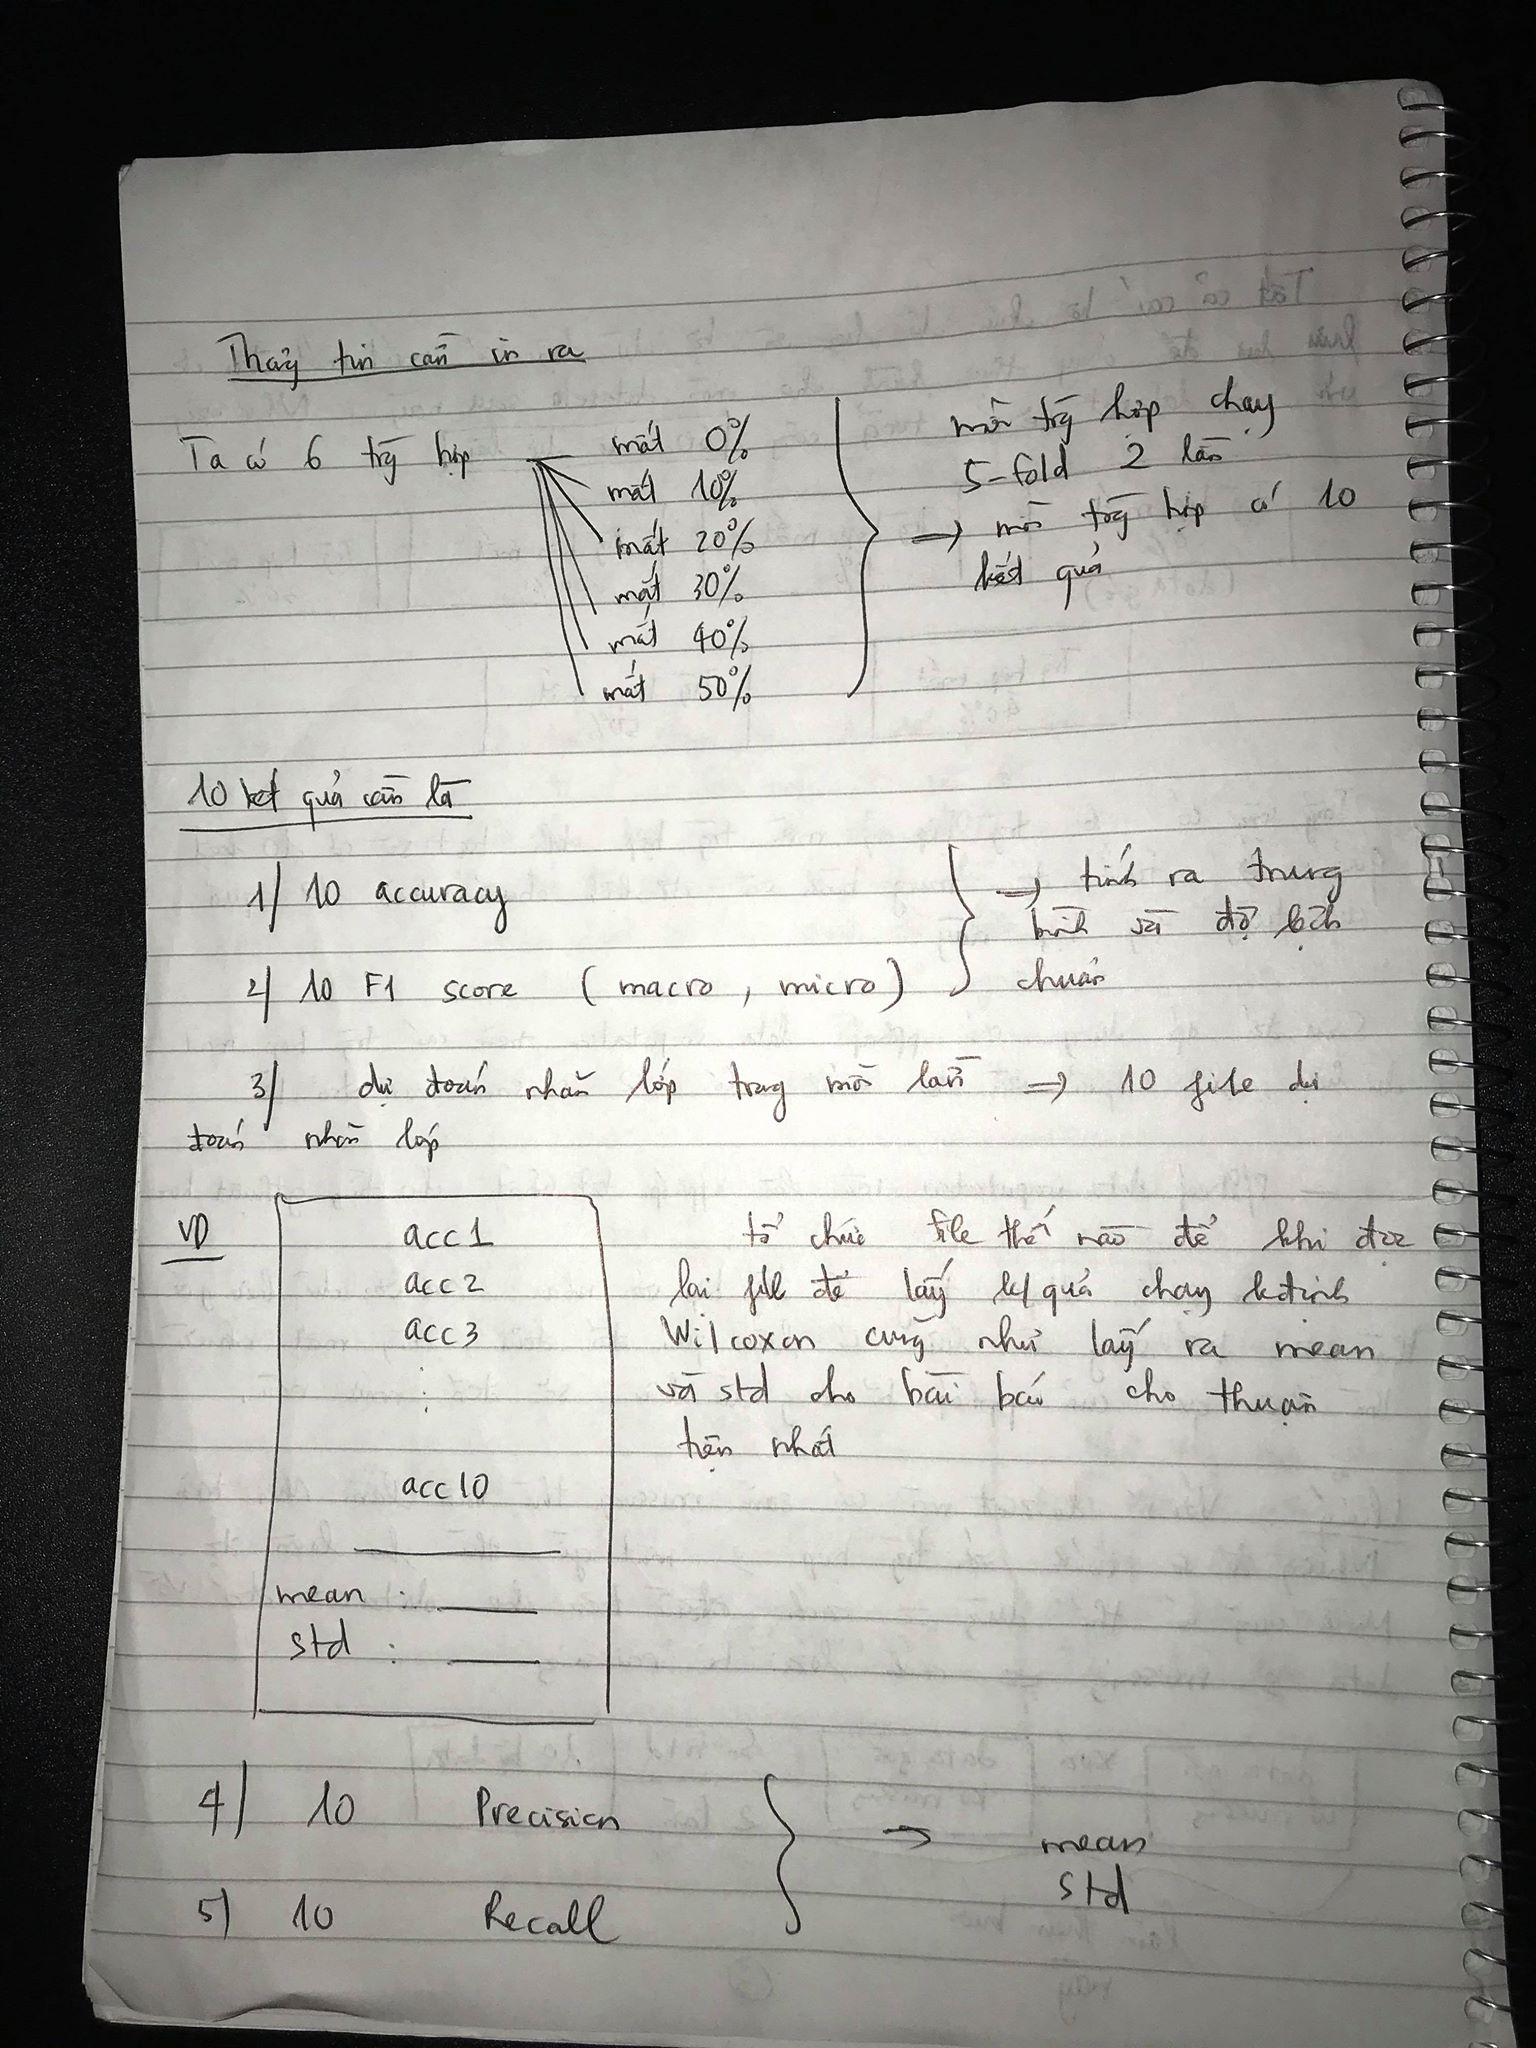 Thông tin cần in ra
Ta có 6 trg hợp
mất 0%
mất 10%
mất 20%
mất 30%
mất 40%
mất 50%
mỗi trg hợp chạy
5-fold 2 lần
→ mỗi trg hợp có 10
kết quả
10 kết quả cần là
1/ 10 accuracy
2/ 10 F1 score (macro, micro)
→ tính ra trung
bình và độ lệch
chuẩn
3/ dự đoán nhãn lớp trong mỗi lần → 10 file dự
đoán nhãn lớp
VD
acc 1
acc 2
acc 3
acc 10
mean :
std :
tổ chức file thế nào để khi đọc
lại file để lấy k/quả chạy k.định
Wilcoxon cũng như lấy ra mean
và std cho bài báo cho thuận
tiện nhất
4/ 10 Precision
5/ 10 Recall
→ mean
std